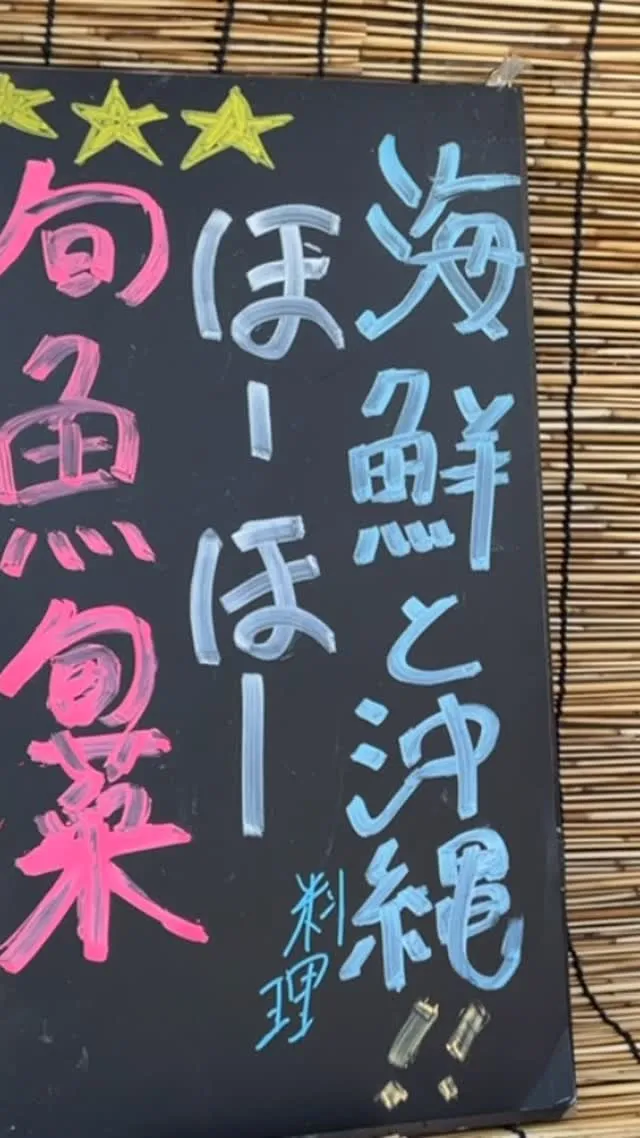 海鮮と沖縄料理!!
ほーほー
旬魚旬菜